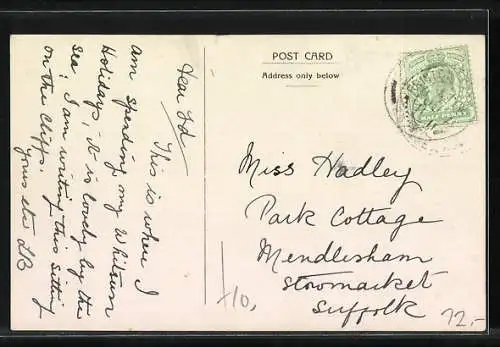 Dear Fd
This is where I
am spending my Whitsun
Holidays, it is lovely by the
sea! I am writing this sitting
on the Cliffs.
Yours etc LB
POST CARD
Address only below
HALF PENNY
Miss Hadley
Park Cottage
Mendlesham
Stowmarket
Suffolk
12,-